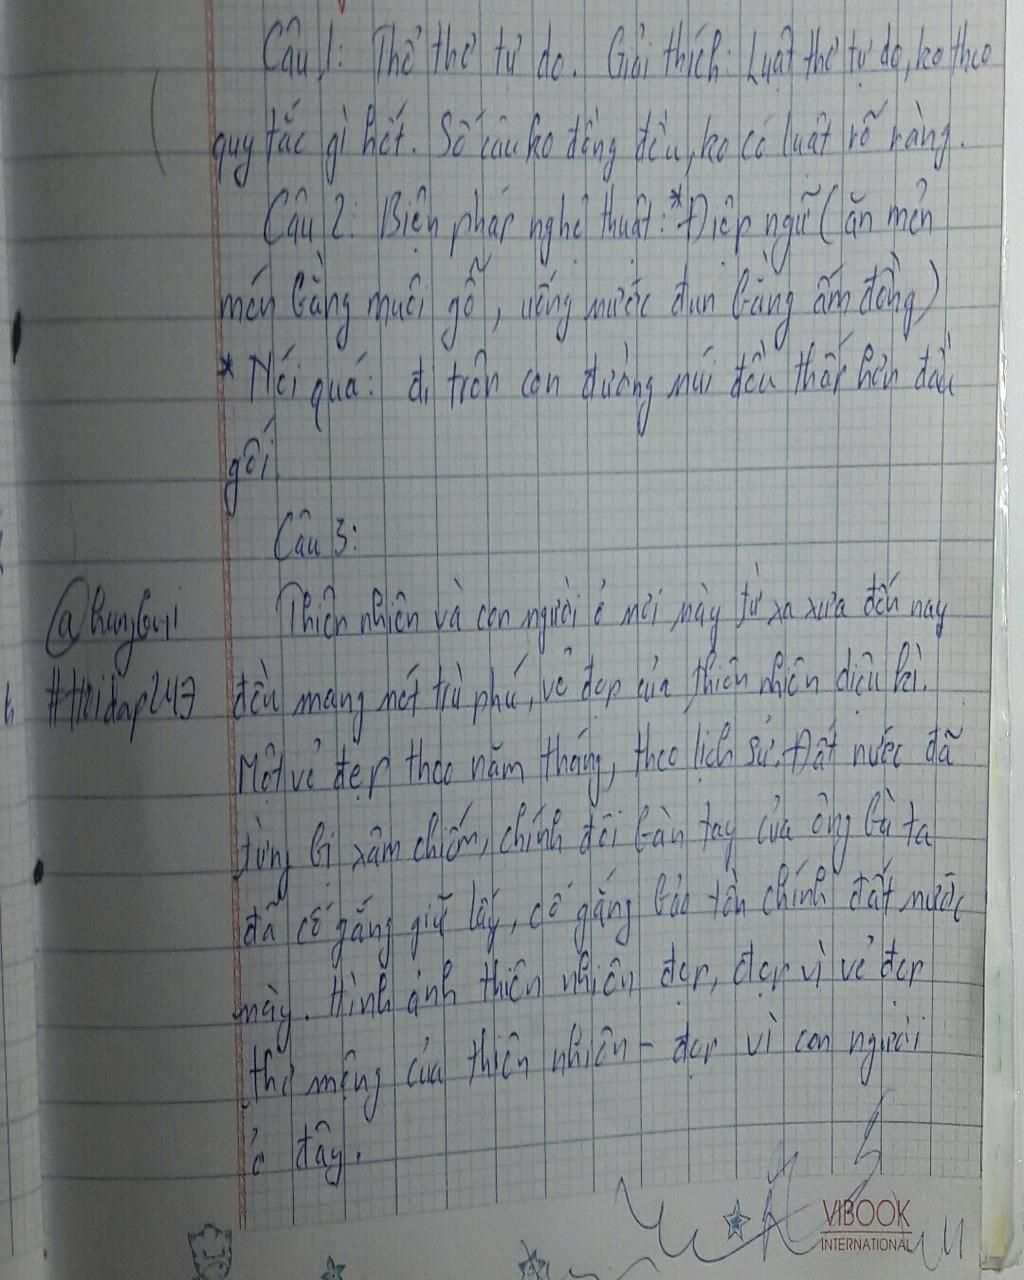 Câu 1: Thể thơ tự do. Giải thích: Luật thơ tự do, ko theo
quy tắc gì hết. Số câu ko đồng đều, ko có luật rõ ràng.
Câu 2: Biện pháp nghệ thuật: *Điệp ngữ (ăn mèn
mén bằng muôi gỗ, uống nước đun bằng ấm đồng)
* Nói quá: đi trên con đường núi đều thấp hơn đầu
gối
Câu 3:
Thiên nhiên và con người ở nơi này từ xa xưa đến nay
@hungbuji
đều mang nét trù phú, vẻ đẹp của thiên nhiên diệu kì.
#Hoidap247
Một vẻ đẹp theo năm tháng, theo lịch sử. Đất nước đã
từng bị xâm chiếm, chính đôi bàn tay của ông bà ta
đã cố gắng giữ lấy, cố gắng bảo tồn chính đất nước
này. Hình ảnh thiên nhiên đẹp, đẹp vì vẻ đẹp
thơ mộng của thiên nhiên - đẹp vì con người
ở đây.
VIBOOK
INTERNATIONAL